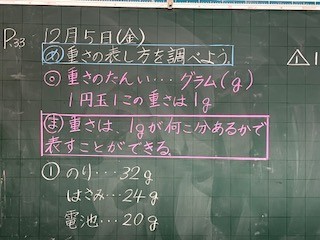 P.33 12月5日(金)
め 重さの表し方を調べよう。
◎ 重さのたんい…グラム(g)
1円玉1この重さは1g
ま 重さは、1gが何こ分あるかで
表すことができる。
① のり…32g
はさみ…24g
電池…20g
△1